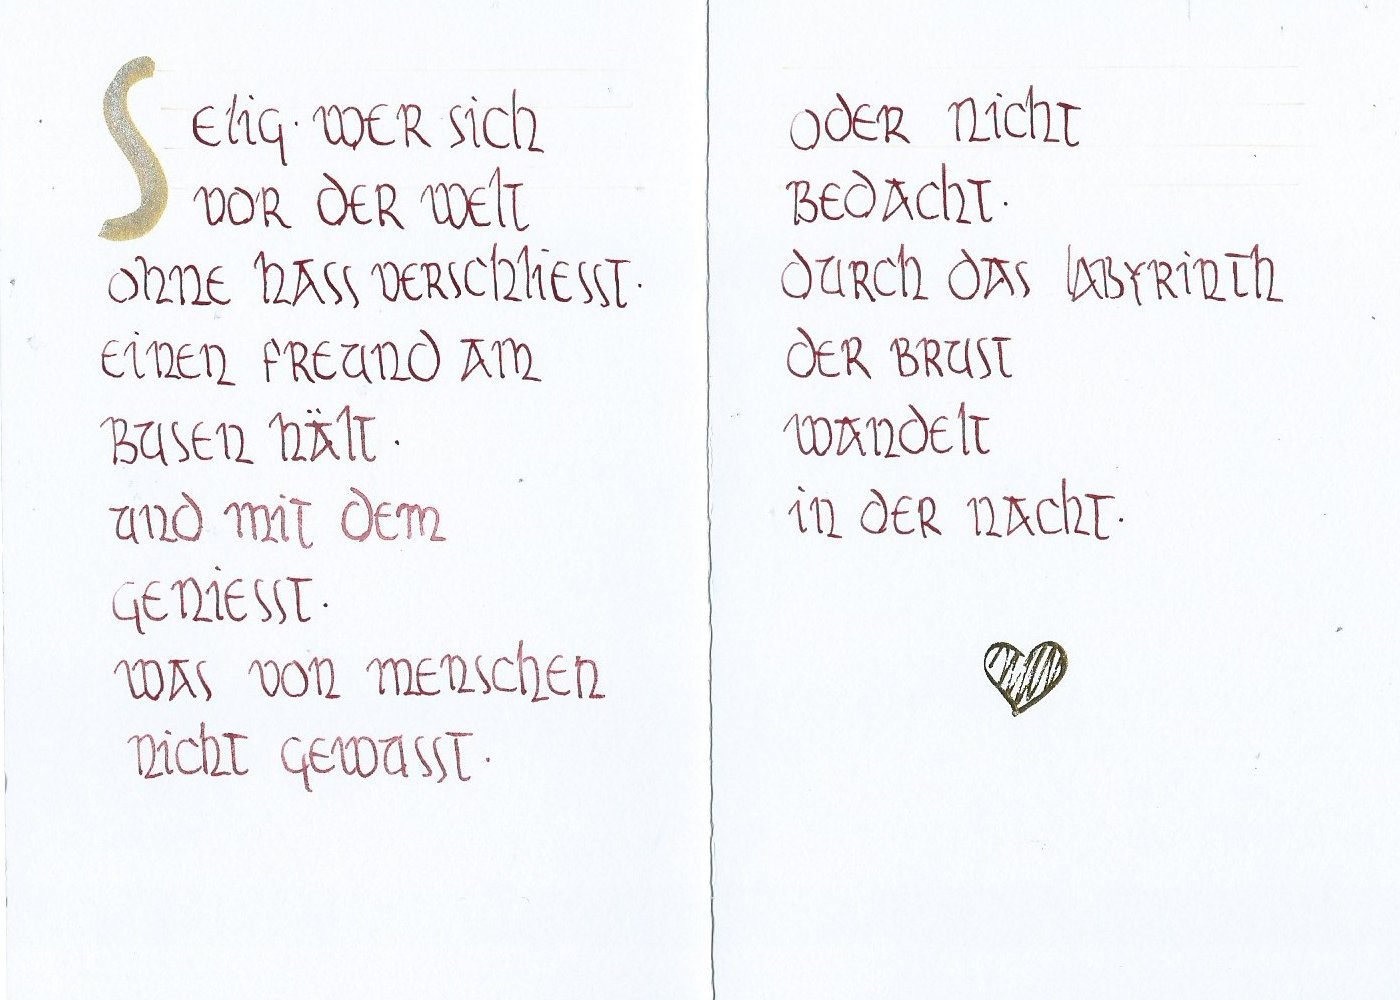 Selig · wer sich
vor der Welt
ohne Hass verschliesst ·
einen Freund am
Busen hält ·
und mit dem
geniesst ·
was von Menschen
nicht gewusst ·
oder nicht
bedacht ·
durch das Labyrinth
der Brust
wandelt
in der Nacht ·